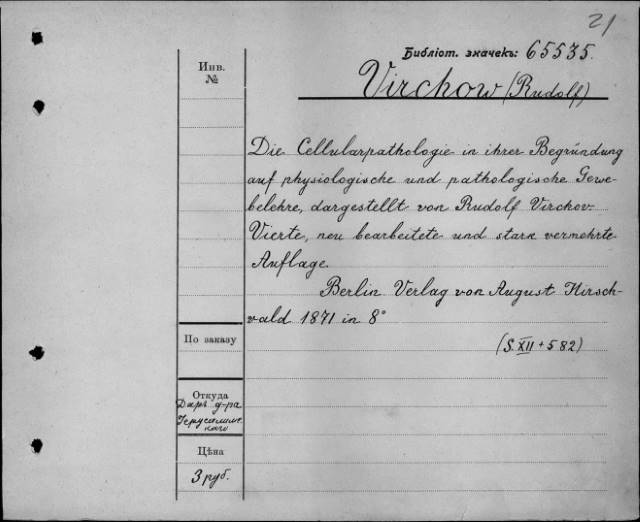 21
Библіот. значекъ: 65535.
Virchow (Rudolf)
Инв.
№
Die Cellularpathologie in ihrer Begründung
auf physiologische und pathologische Gewe-
belehre, dargestellt von Rudolf Virchov.
Vierte, neu bearbeitete und stark vermehrte
Auflage.
Berlin Verlag von August Hirsch-
vald 1871 in 8°
(S. XII + 582)
По заказу
Откуда
Даръ д-ра
Іерусалим-
скаго
Цѣна
3 руб.